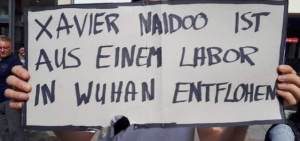 XAVIER NAIDOO IST
AUS EINEM LABOR
IN WUHAN ENTFLOHEN